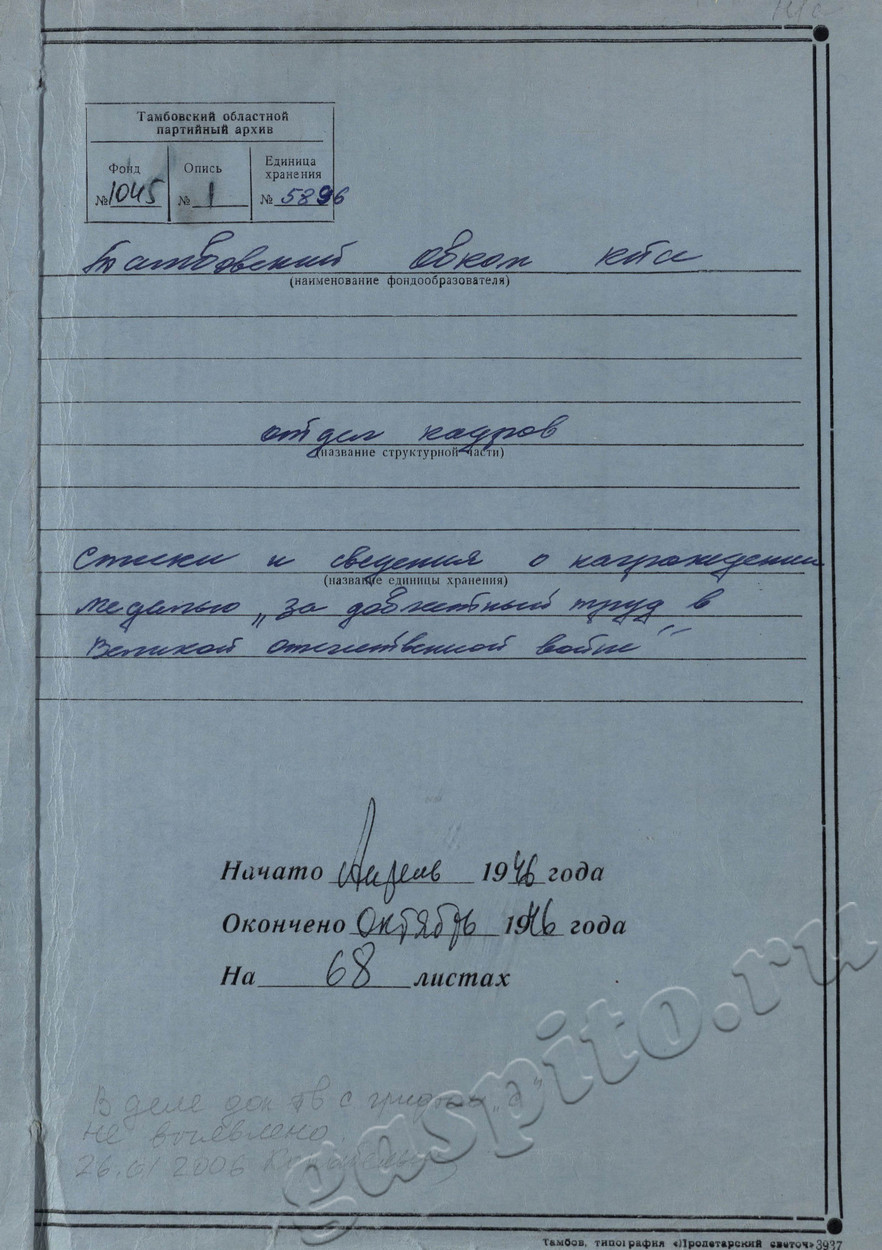 Тамбовский областной
партийный архив
Фонд Опись Единица хранения
№ 1045 № 1 № 5896
Тамбовский Обком КПСС
(наименование фондообразователя)
отдел кадров
(название структурной части)
Списки и сведения о награждении
(название единицы хранения)
медалью „за доблестный труд в
Великой отечественной войне"
Начато Апрель 1946 года
Окончено Октябрь 1946 года
На 68 листах
В деле док-тов с грифом „с"
не выявлено.
26.01 2006
gaspito.ru
Тамбов, типография «Пролетарский светоч» 3937